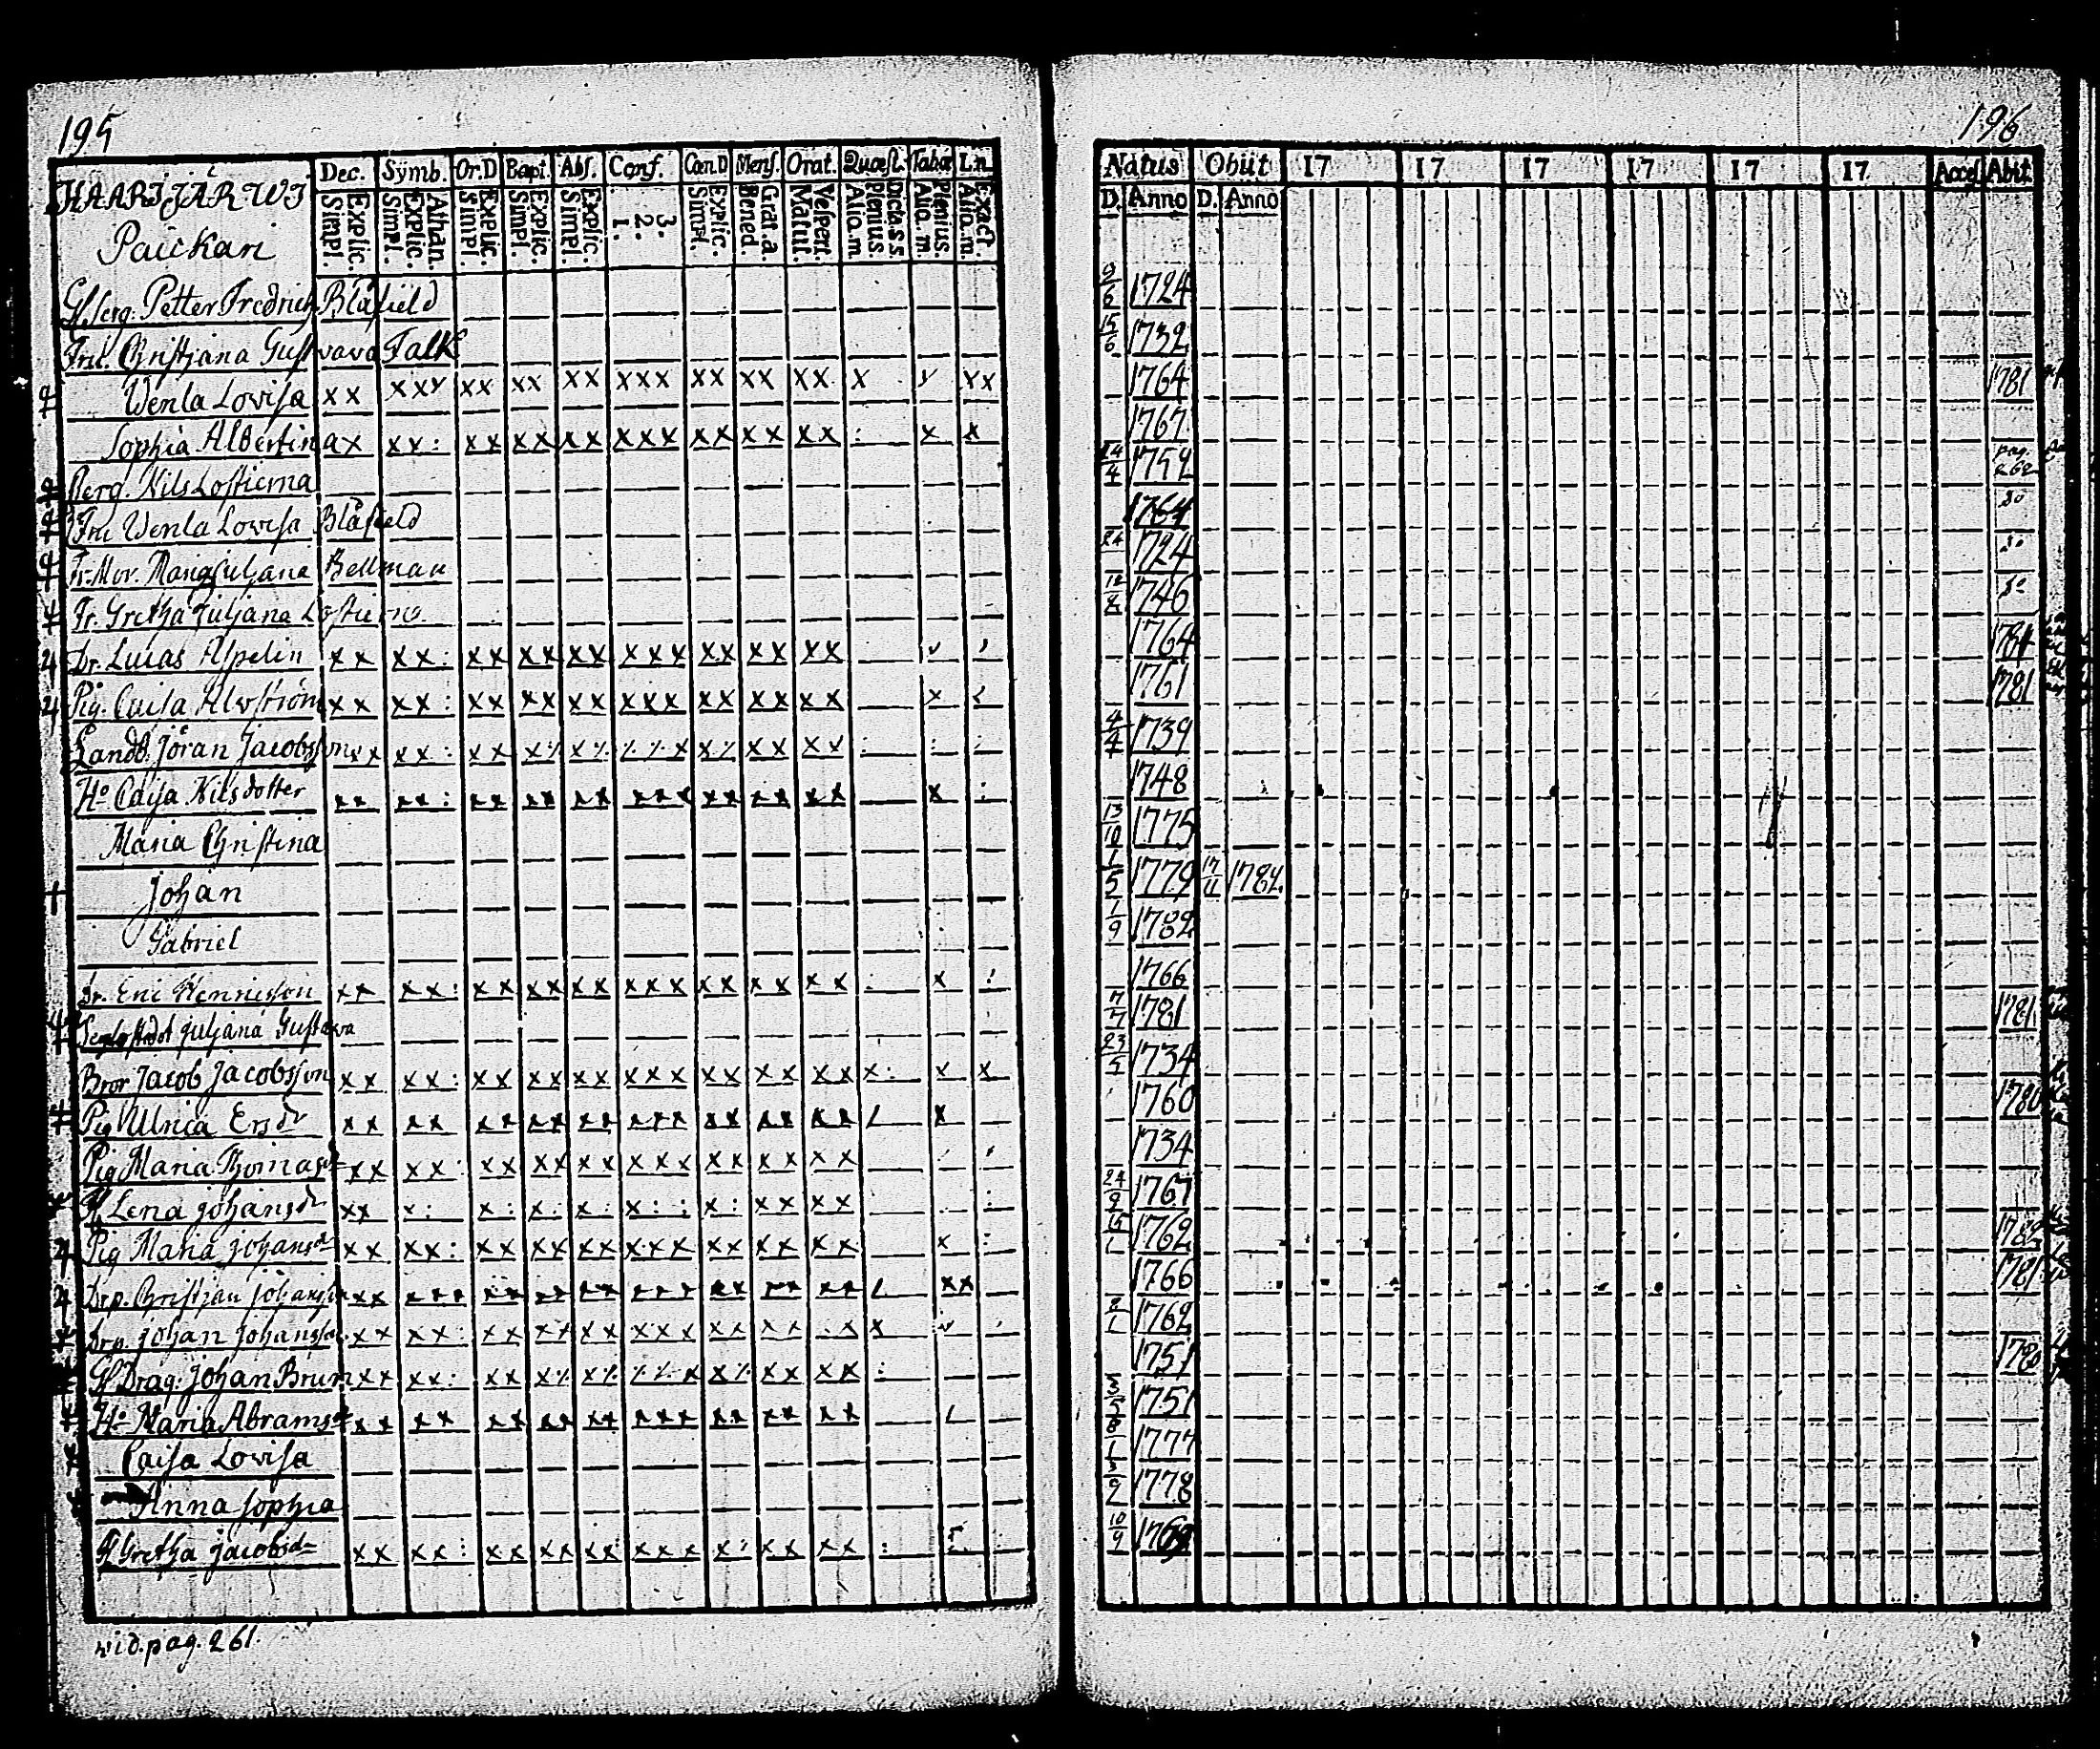 195
HAARJÄRWI
Paickari
Dec. Symb. Or.D Bapt. Abs. Conf. Cœn.D Mens. Orat. Quæst. Tabæ L.n.
Simpl. Explic. Simpl. Explic. Athan. Simpl. Explic. Simpl. Explic. Simpl. Explic. 1. 2. 3. Simpl. Explic. Bened. Grat.a. Matut. Vespert. Alio.m Plenius. Dicta.s.s. Alio.m. Plenius. Alio.m. Exact.
Gf. serg. Petter Fredrich Blåfield
Fru. Christjana Gustvava Falk
Wenla Lovisa xx xxx xx xx xx xxx xx xx xx x x xx
Sophia Albertina x xx: xx xx xx xxx xx xx xx : x x
Serg. Nils Loftierna
Fru Wenla Lovisa Blåfield
Fr. Mor. Maria Juljana Bellman
Fr. Gretha Juljana Loftierna
Dr. Lucas Aspelin xx xx: xx xx xx xxx xx xx xx
Pig. Caisa Alvström xx xx: xx xx xx xxx xx xx xx x
Landb. Jöran Jacobsson xx xx: xx x٪ x٪ ٪٪x x٪ xx xx : : :
Ho Caija Nilsdotter xx xx: xx xx xx xxx xx xx xx x :
Maria Christina
Johan
Gabriel
Dr. Eric Henricsson xx xx: xx xx xx xxx xx xx xx . x :
Juljana Gustava
Bror Jacob Jacobsson xx xx: xx xx xx xxx xx xx xx x: x x
Pig Ulrica Ersdr xx xx xx xx xx xxx xx xx xx x
Pig Maria Thomasdr xx xx: xx xx xx xxx xx xx xx
Lena Johansdr xx x: x: x: x: x:: x: xx xx :
Pig Maria Johansdr xx xx: xx xx xx xxx xx xx xx x :
Drp. Christjan Johansson xx xxx xx xx xx xxx xx xx xx xx
Drp. Johan Johansson xx xx: xx xx xx xxx xx xx xx x
Gf Drag: Johan Brum xx xx: xx x٪ x٪ ٪٪x x٪ xx xx :
Ho Maria Abramsdr xx xx xx xx xx xxx xx xx xx
Caisa Lovisa
Anna Sophia
Gretha Jacobsdr xx xx: xx xx xx: xxx x: xx xx :
vid. pag. 261.
196
Natus Obiit 17 17 17 17 17 17 Acces Abiit
D. Anno D. Anno
9/6 1724
15/6 1732
1764 1781
1767
24/4 1752 pag. 262
1764 do
24 1724 do
12/8 1746 do
1764 1784
1761 1781
4/4 1739
1748
13/10 1775
1/5 1779 17/11 1782
1/9 1782
1766
7/7 1781 1781
23/5 1734
1760 1780
1734
24/9 1767
15/1 1762 1782
1766 1781
8/1 1762
1751 1780
3/5 1751
8/1 1777
3/9 1778
10/9 1769